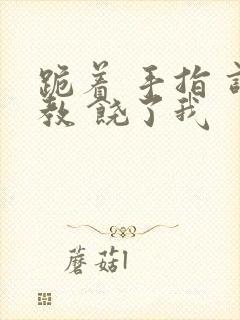 跪着 手指
教 饶了我
蘑菇l